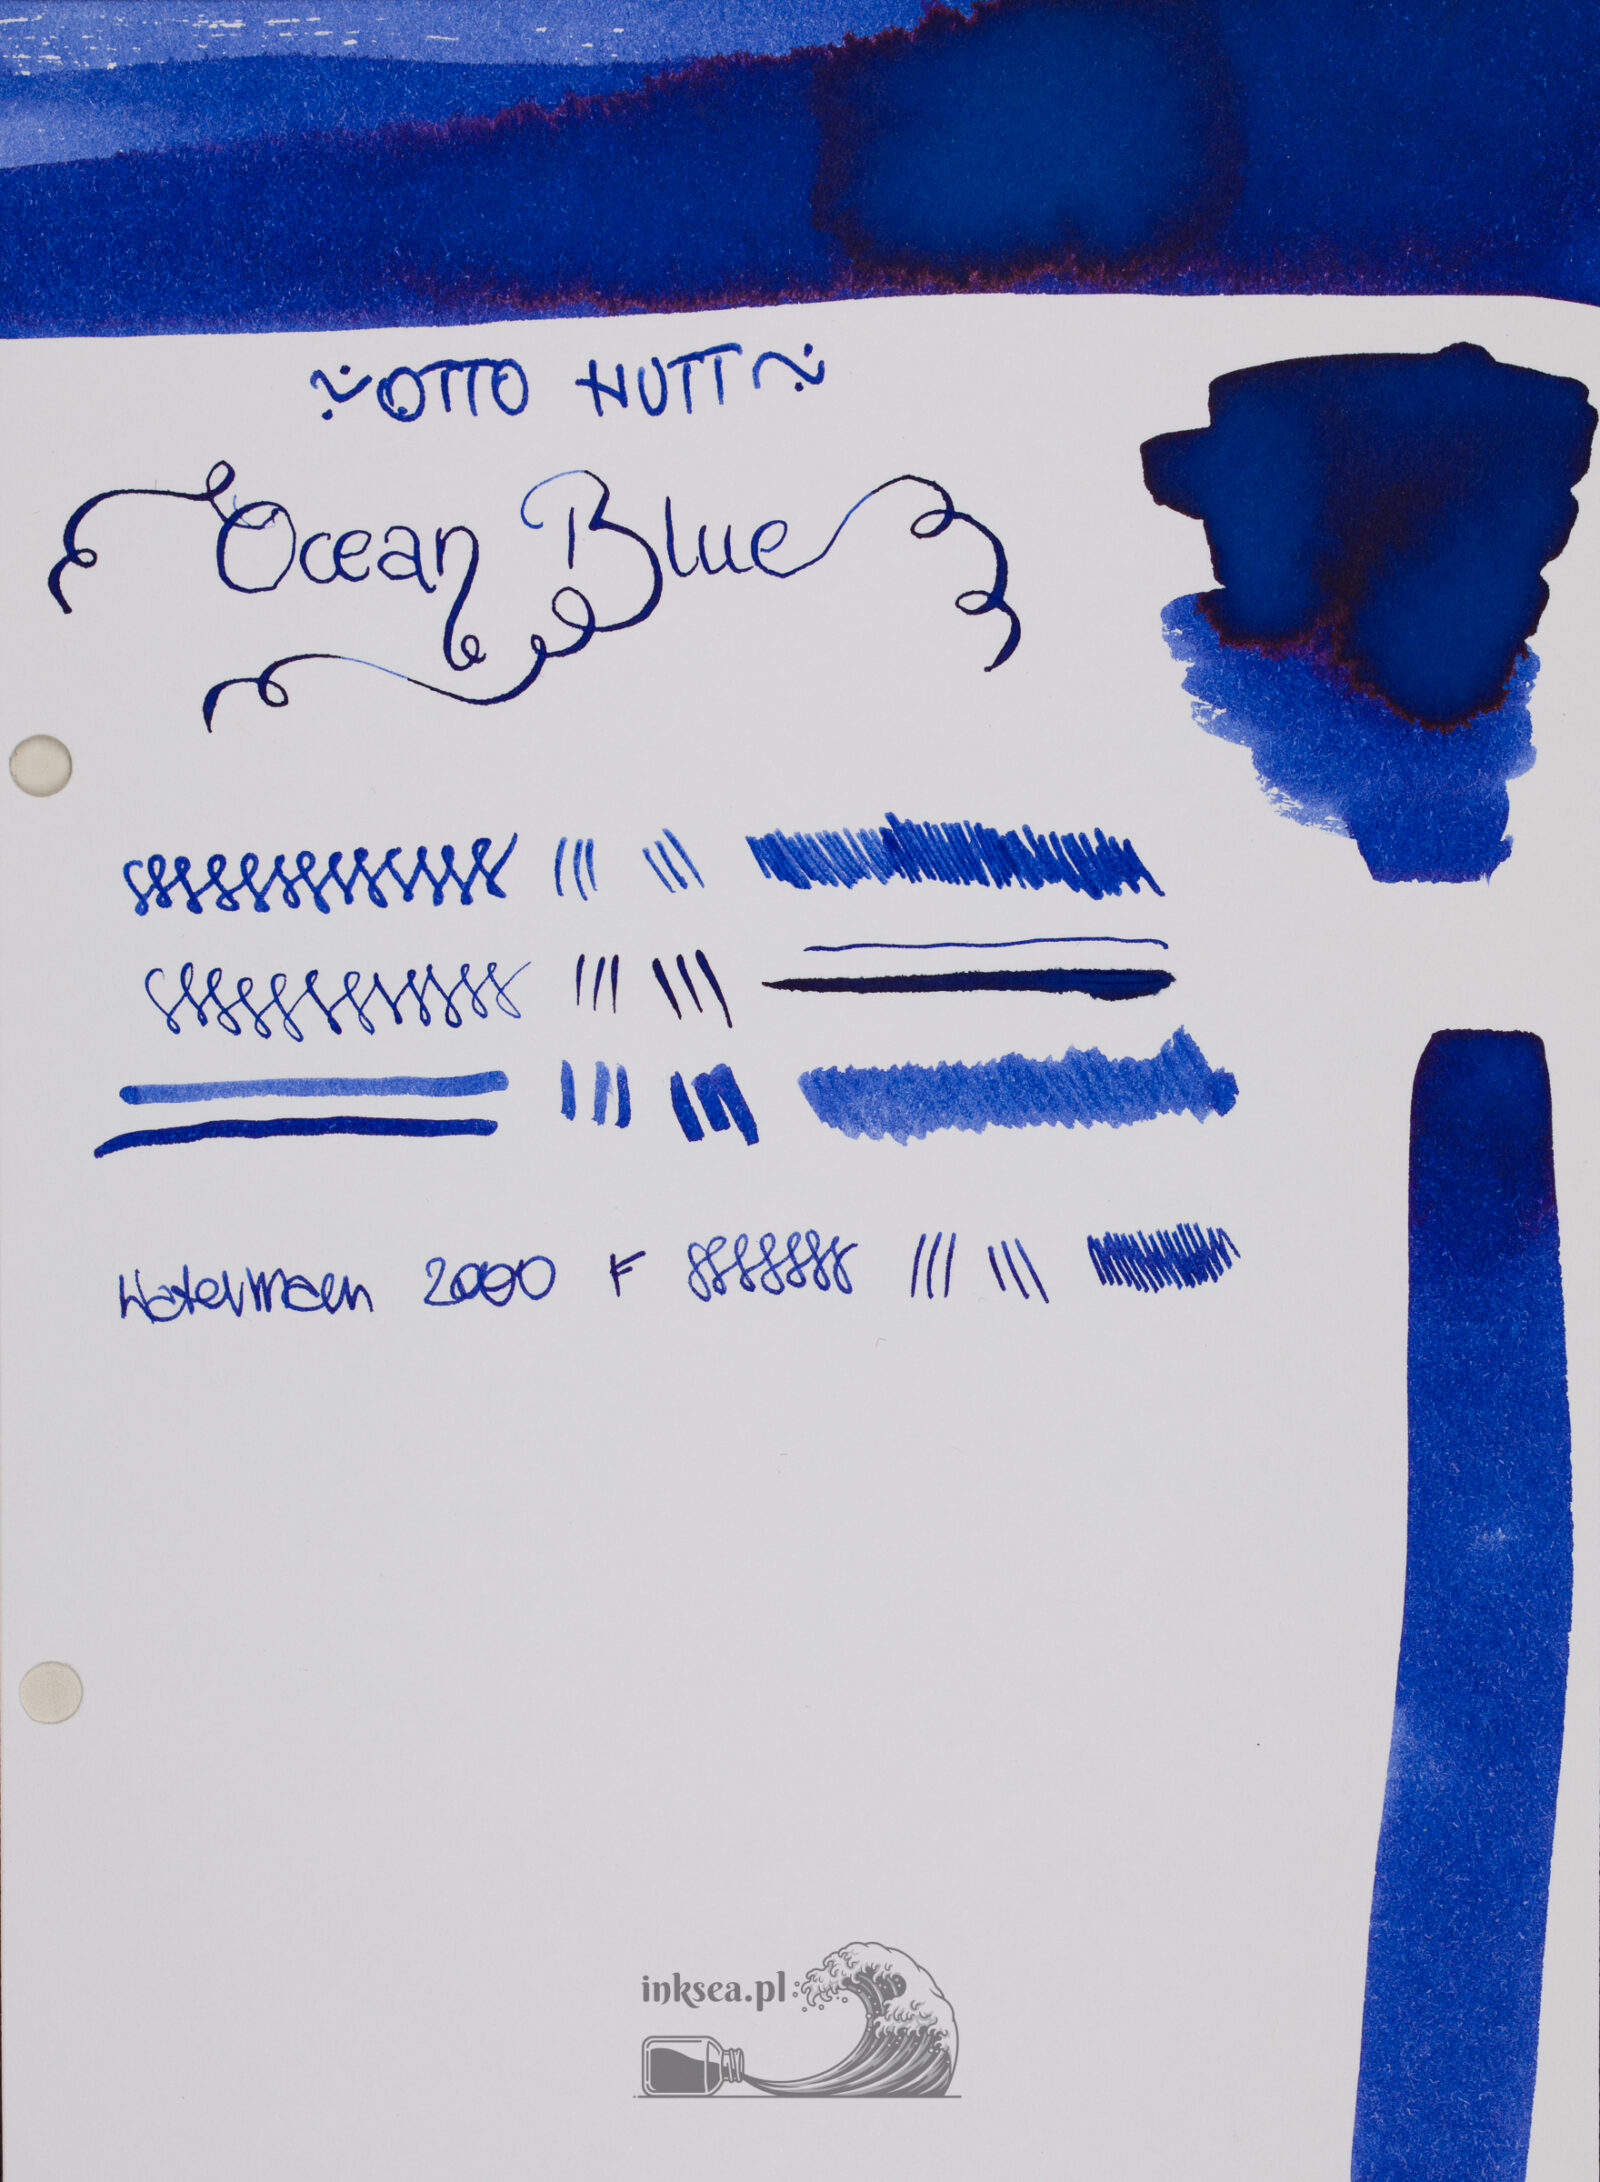 OTTO HUTT
Ocean Blue
Waterman 2000 F
inksea.pl